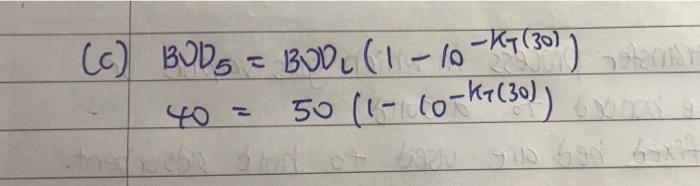 (c) BOD₅ = BOD_L (1 - 10^-K_T(30))
40 = 50 (1 - 10^-K_T(30))